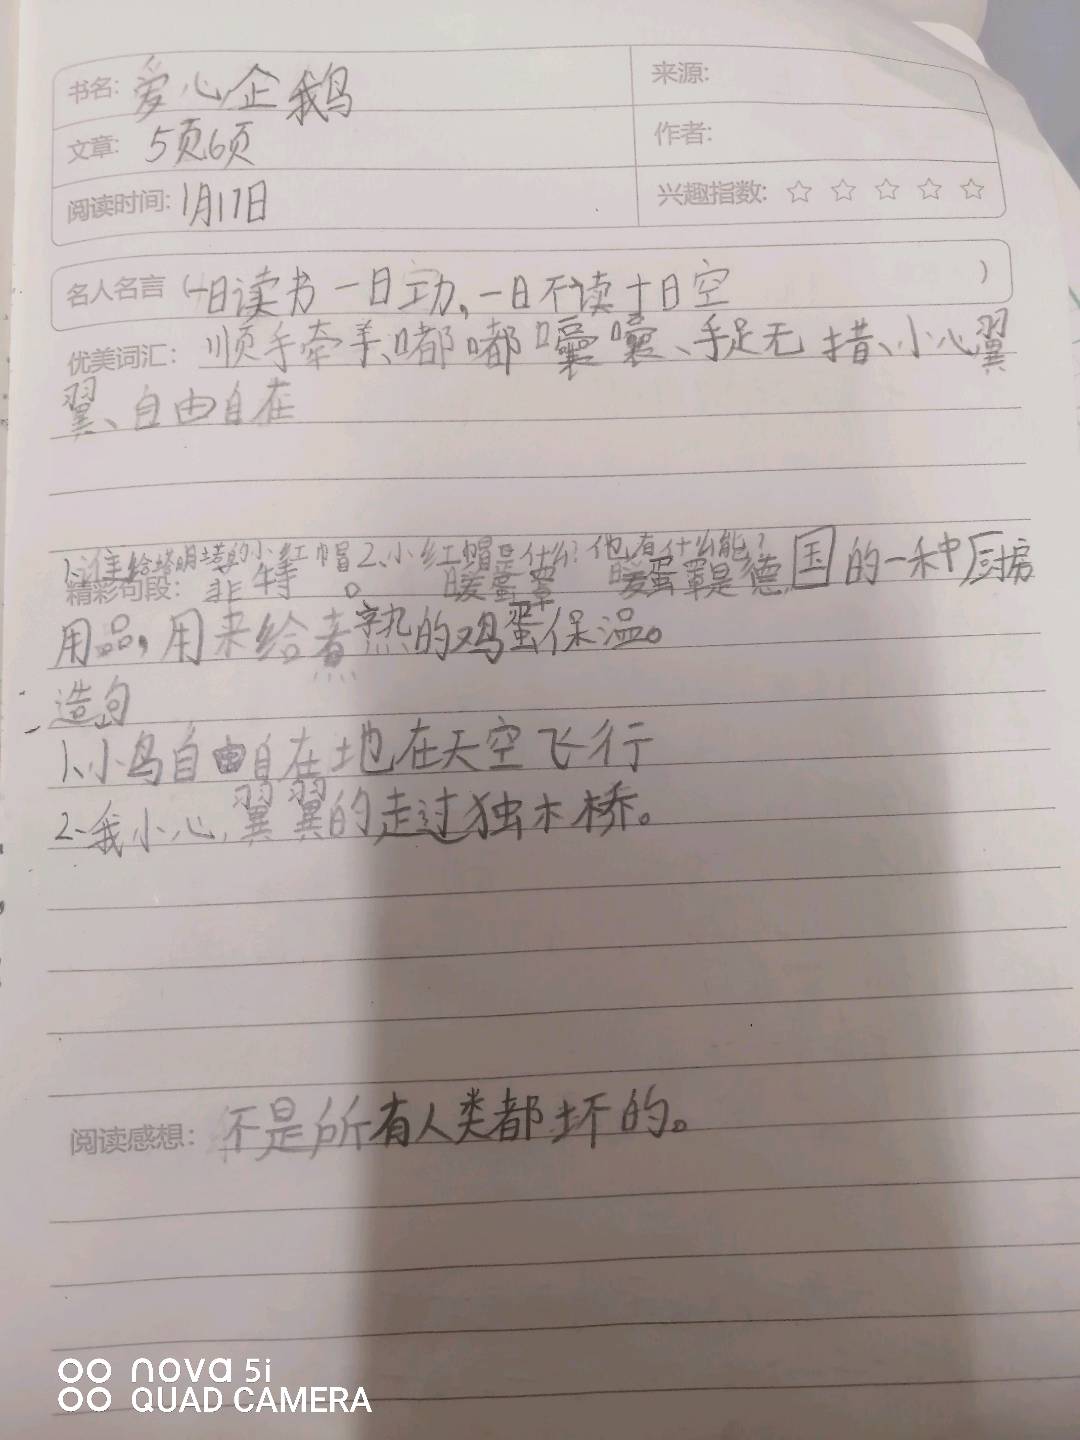 书名: 爱心企鹅
来源:
文章: 5页6页
作者:
阅读时间: 1月17日
兴趣指数: ☆ ☆ ☆ ☆ ☆
名人名言（一日读书一日功，一日不读十日空）
优美词汇： 顺手牵羊、嘟嘟囔囔、手足无措、小心翼
翼、自由自在
1、谁给塔明戴的小红帽 2、小红帽是什么？他有什么能？
精彩句段： 菲特。 暖蛋罩 暖蛋罩是德国的一种厨房
用品，用来给煮熟的鸡蛋保温。
造句
1、小鸟自由自在地在天空飞行
2、我小心翼翼的走过独木桥。
阅读感想： 不是所有人类都坏的。
nova 5i
QUAD CAMERA